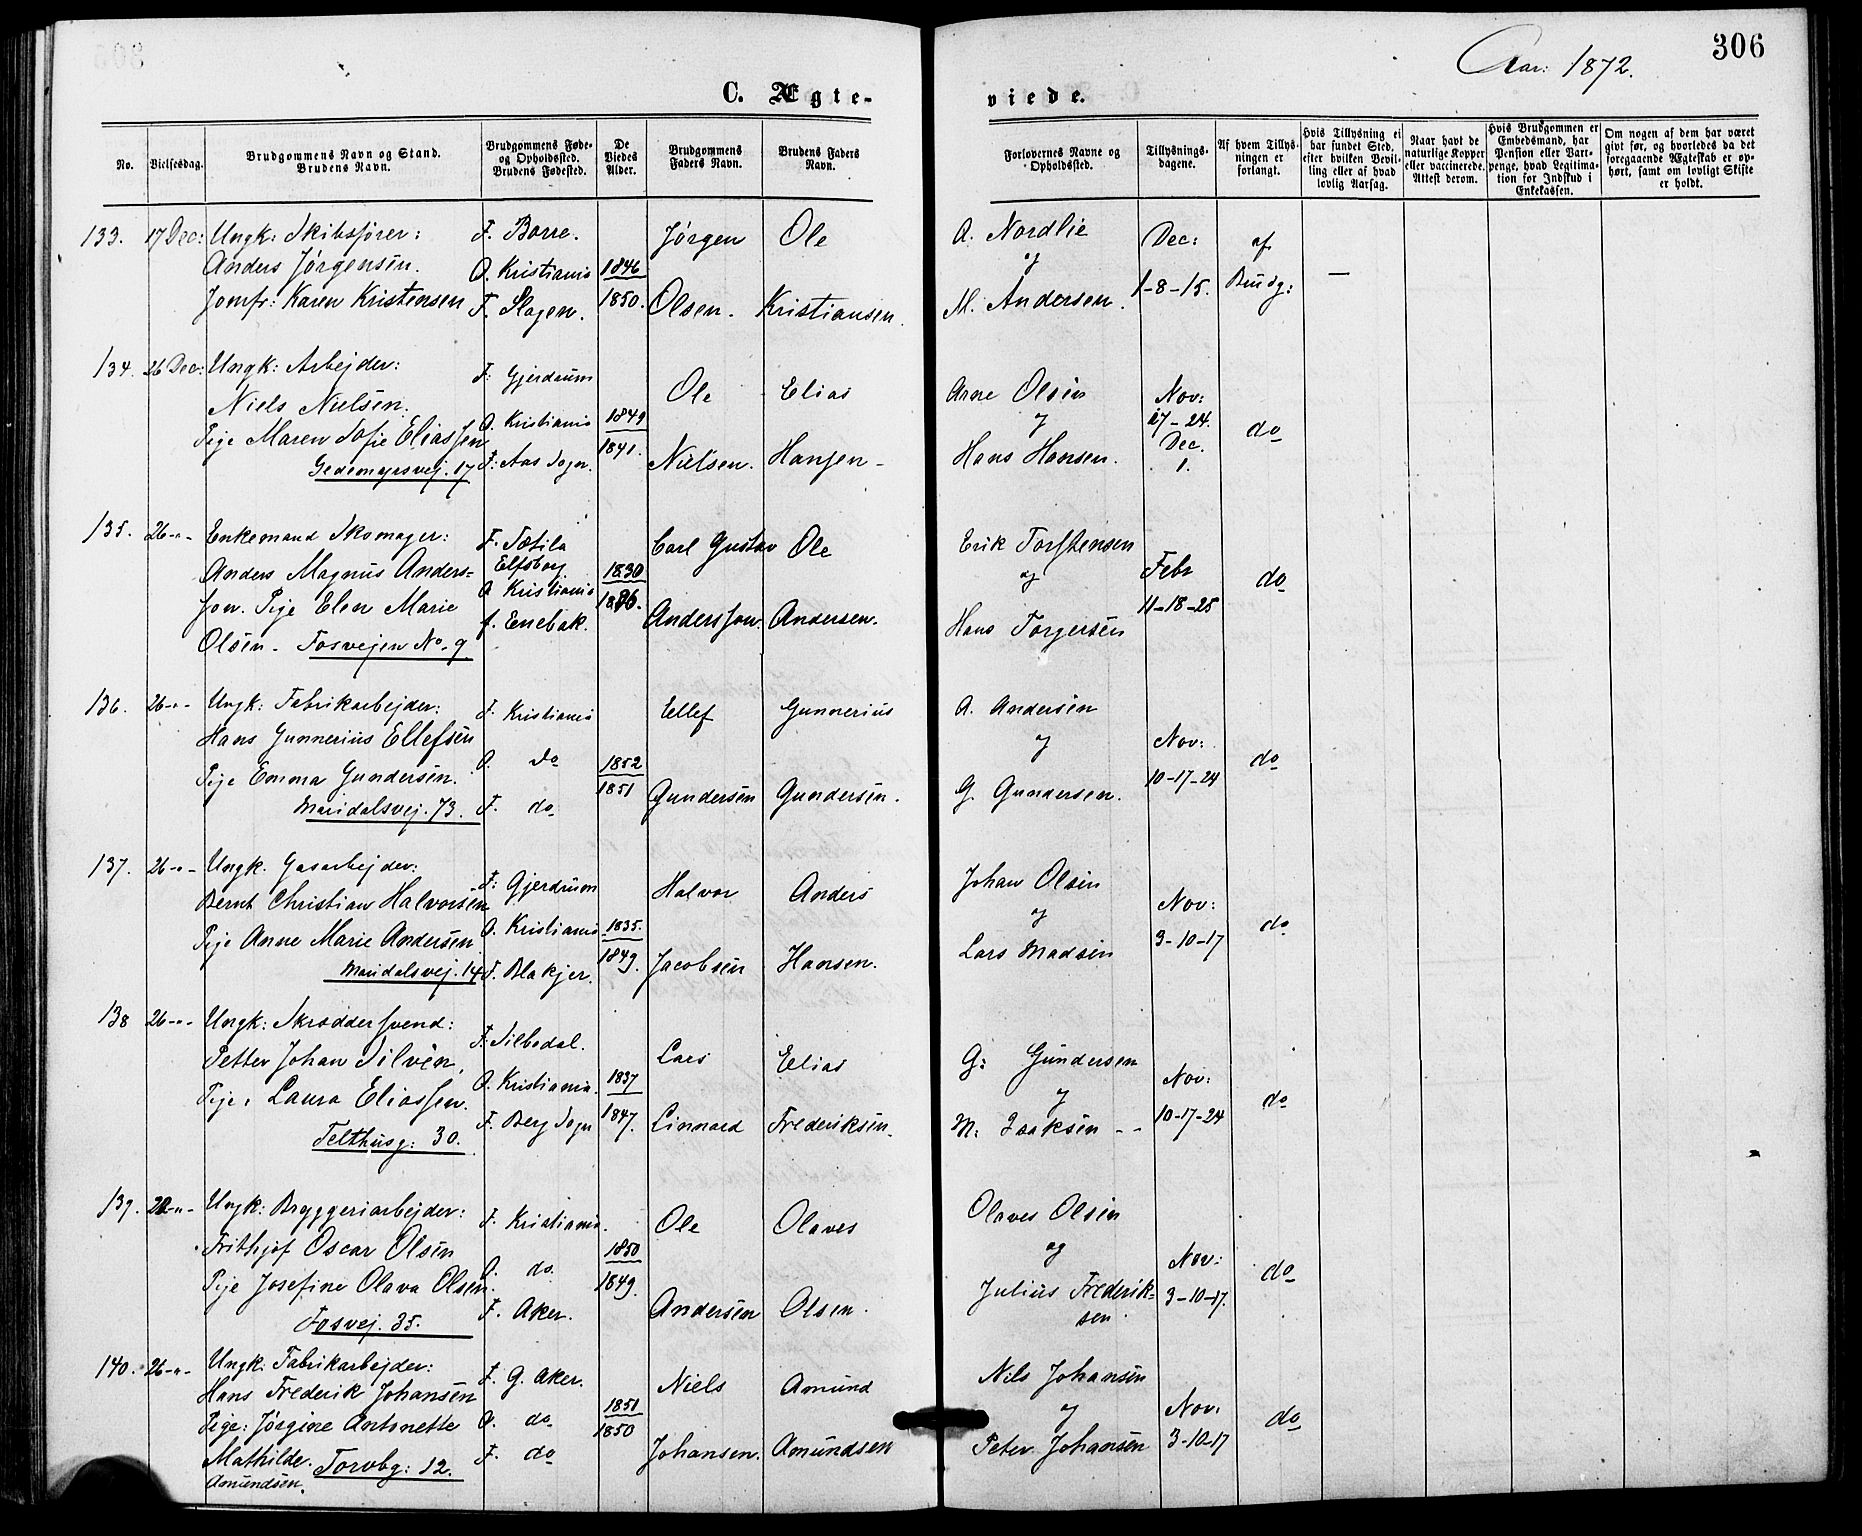 306
Aar: 1872.
C. Ægte-
viede.
No.
Vielsesdag.
Brudgommens Navn og Stand.
Brudens Navn.
Brudgommens Føde-
og Opholdssted.
Brudens Fødested.
De
Viedes
Alder.
Brudgommens
Faders Navn.
Brudens Faders
Navn.
Forlovernes Navne og
Opholdssted.
Tillysnings-
dagene.
Af hvem Tillys-
ningen er
forlangt.
Hvis Tillysning ei
har fundet Sted,
efter hvilken Bevil-
ling eller af hvad
lovlig Aarsag.
Naar havt de
naturlige Kopper
eller vaccinerede.
Attest derom.
Hvis Brudgommen er
Embedsmand, har
Pension eller Vart-
penge, hvad Legitima-
tion for Indskud i
Enkekassen.
Om nogen af dem har været
givt før, og hvorledes da det
foregaaende Ægteskab er op-
hørt, samt om lovligt Skifte
er holdt.
133. 17 Dec: Ungk: Skibsfører: F. Borre. Jørgen Ole A. Nordlie Dec: af
Anders Jørgensen. O. Kristiania 1846 og
Jomfr: Karen Kristensen F. Slagen. 1850. Olsen. Kristiansen. M. Andersen. 1-8-15. Brudg: —
134. 26 Dec: Ungk: Arbejder: F: Gjerdrum Ole Elias Arne Olsen Nov:
Niels Nielsen. O. Kristiania 1849 og 17-24. do
Pige Maren Sofie Eliassen F: Aas Sogn. 1841. Nielsen. Hansen- Hans Hansen. Dec. 1.
Gedemyrsvej. 17
135. 26-"- Enkemand Skomager: F. Sætila Carl Gustav Ole Erik Torstensen
Anders Magnus Anders= Elfsborg 1830 og Febr do
son. Pige Elen Marie O Kristiania 11-18-25
Olsen- Fosvejen No. 9 f. Enebak. Andersson. Andersen. Hans Torgersen
136. 26-"- Ungk: Fabrikarbejder: F. Kristiania Ellef Gunnerius A. Andersen
Hans Gunnerius Ellefsen O. do 1852 og Nov: do
Pige Emma Gundersen. F. do 1851 Gundersen Gundersen. G. Gundersen. 10-17-24
Maridalsvej. 73.
137. 26-"- Ungk. Gasarbejder: F: Gjerdrum Halvor Anders Johan Olsen
Bernt Christian Halvorsen O. Kristiania 1835. og Nov: do
Pige Anne Marie Andersen F. Blakjer. 1849. Jacobsen Hansen. Lars Madsen 3-10-17
Maridalsvej. 14
138 26-"- Ungk: Skræddersvend: F: Silbodal. Lars Elias G: Gundersen
Petter Johan Silvén, O. Kristiania. 1837 og Nov: do
Pige: Laura Eliassen. F. Berg Sogn 1847. Linnard Frederiksen. M: Isaksen -- 10-17-24
Telthusg: 30.
139. -"- Ungk: Bryggeriarbejder: F. Kristiania. Ole Olaves Olaves Olsen
Frithjof Oscar Olsen O. do. 1850 og Nov: do
Pige Josefine Olava Olsen. F. Aker. 1849. Andersen Olsen. Julius Frederik= 3-10-17.
Fosvej. 35. sen
140. 26-"- Ungk: Fabrikarbejder: F. G. Aker. Niels Amund Nils Johansen
Hans Frederik Johansen O. do 1851 og Nov: do
Pige: Jørgine Antonette F. do 1850 Johansen. Amundsen Peter Johansen 3-10-17
Mathilde. Torvbg: 12.
Amundsen.